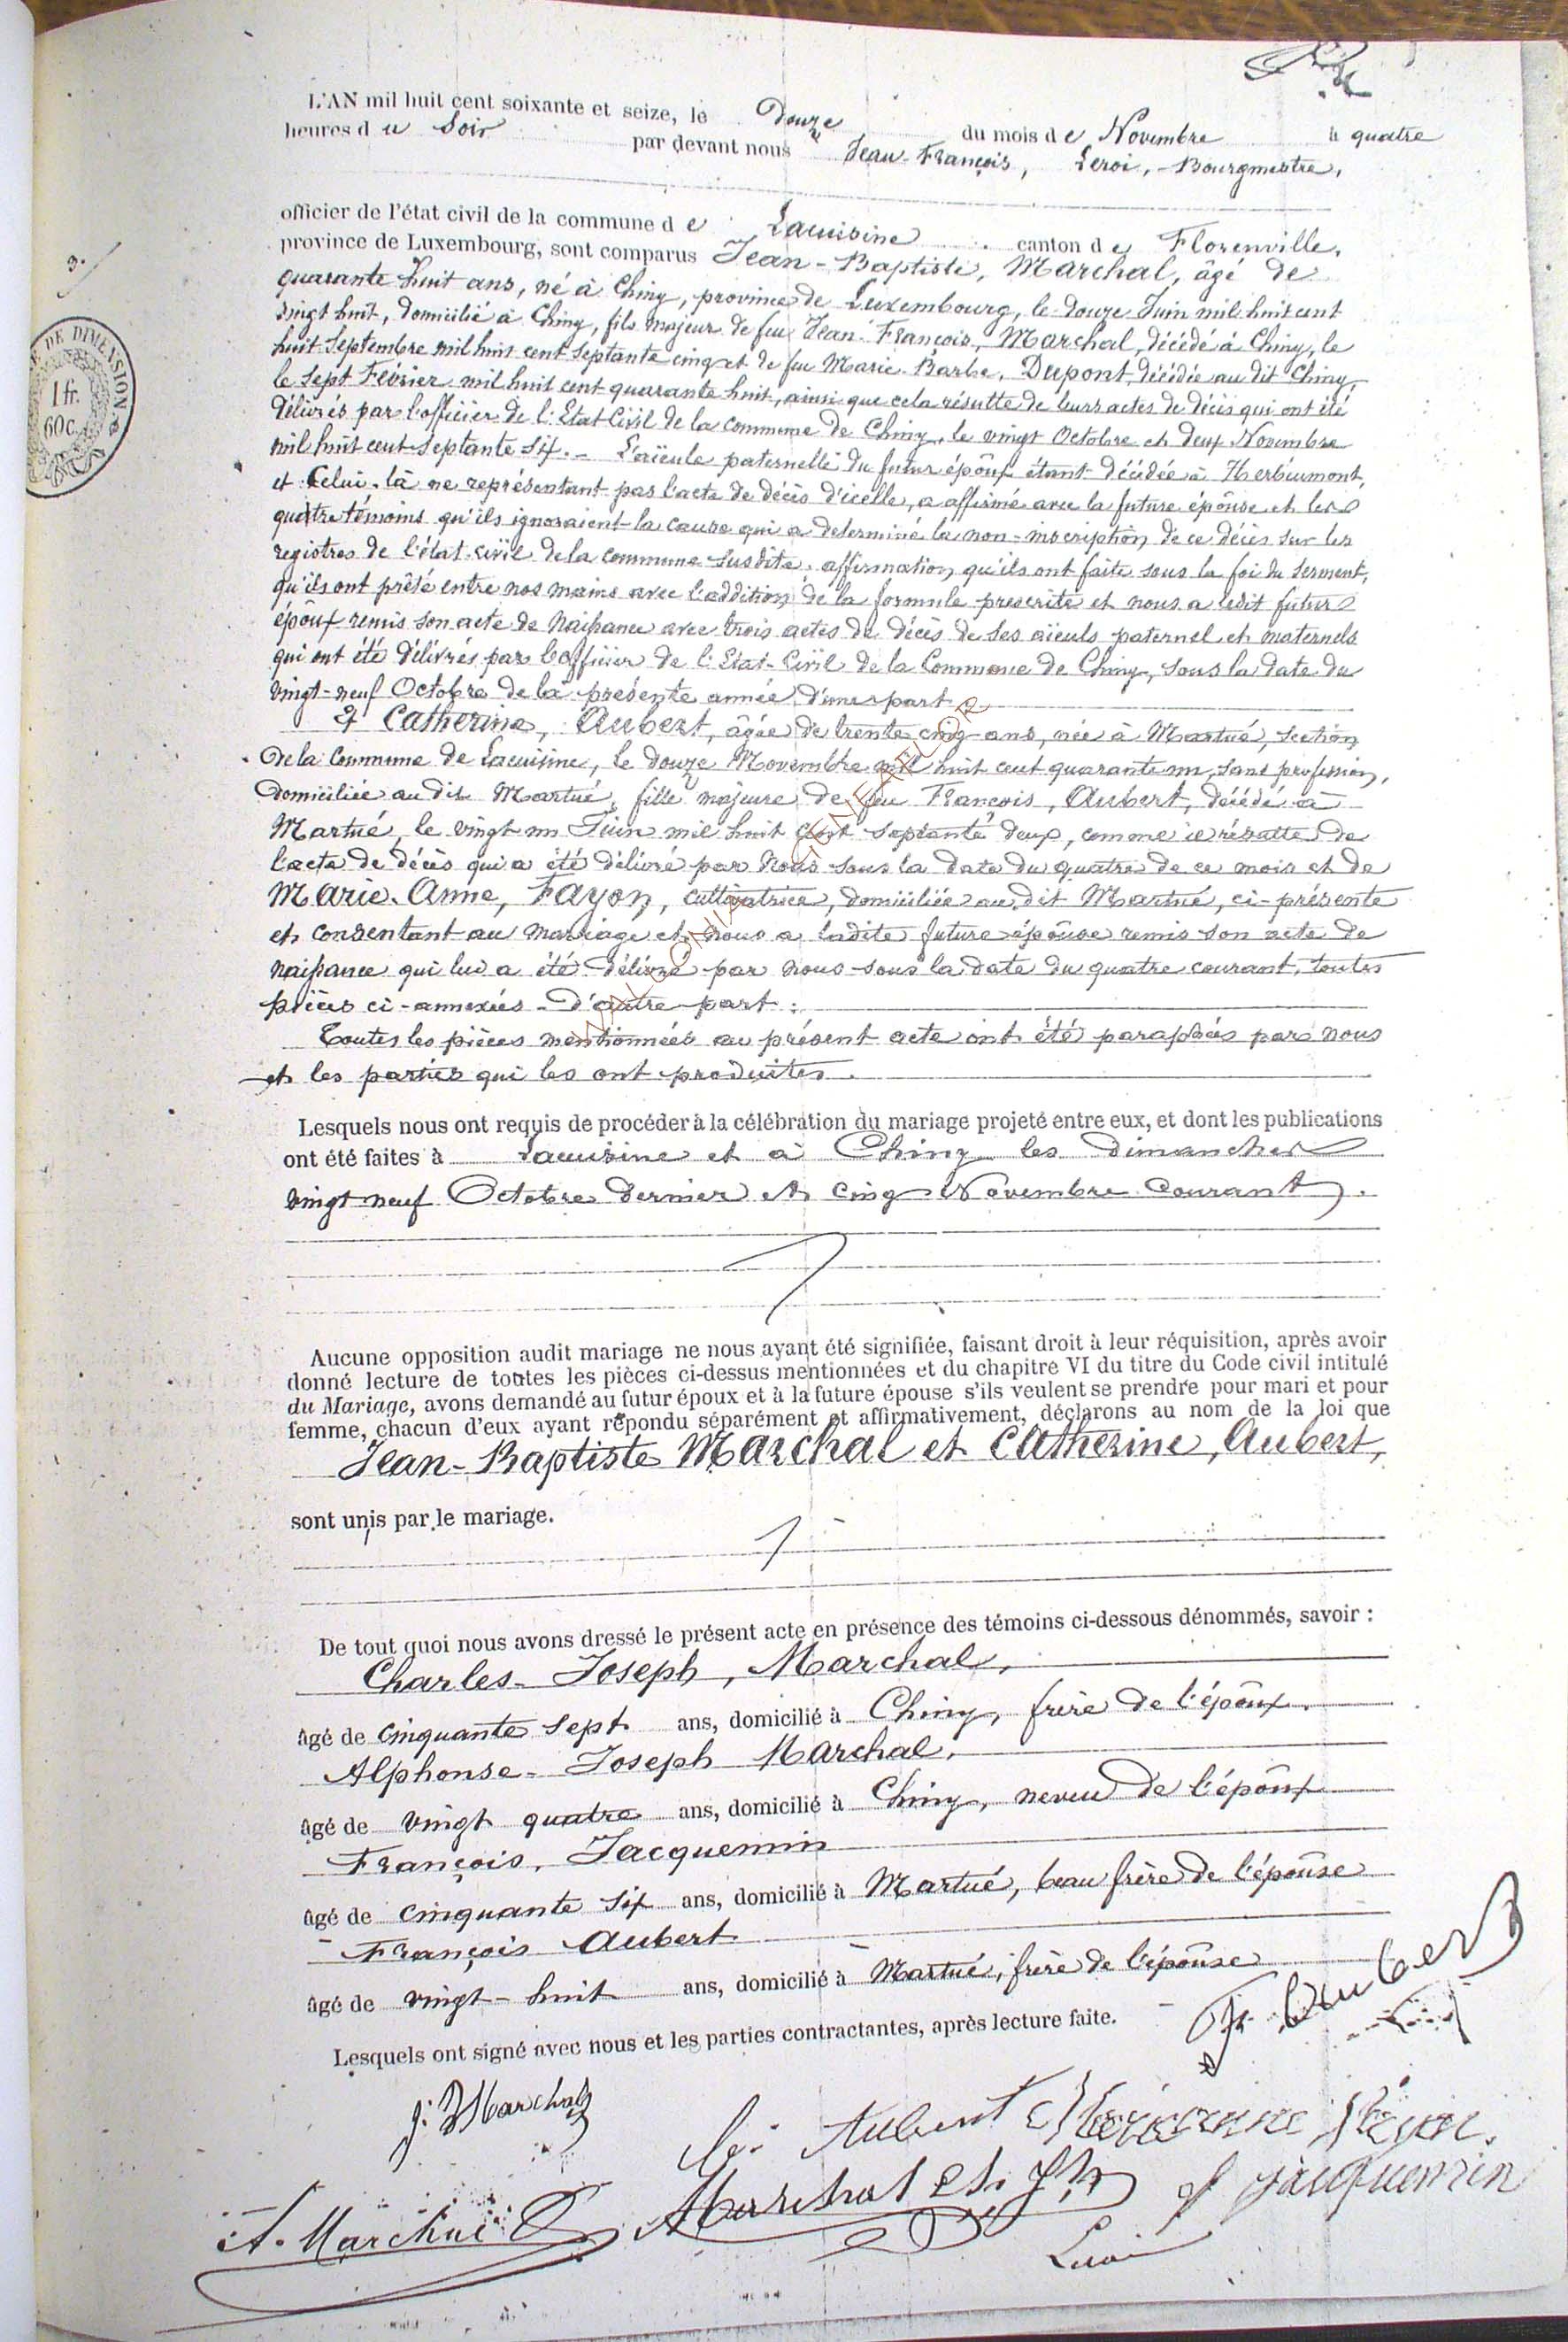 L'AN mil huit cent soixante et seize, le Douze du mois de Novembre à quatre
heures du Soir par devant nous Jean-François, Leroi, Bourgmestre,
officier de l'état civil de la commune de Lacuisine canton de Florenville,
province de Luxembourg, sont comparus Jean-Baptiste, Marchal, âgé de
quarante huit ans, né à Chiny, province de Luxembourg, le douze Juin mil huit cent
vingt huit, domicilié à Chiny, fils majeur de feu Jean François, Marchal, décédé à Chiny, le
huit Septembre mil huit cent septante cinq et de feu Marie-Barbe, Dupont, décédée au dit Chiny,
le sept Février mil huit cent quarante huit, ainsi que cela résulte de leurs actes de décès qui ont été
délivrés par l'officier de l'Etat Civil de la commune de Chiny, le vingt Octobre et deux Novembre
mil huit cent septante six. - L'aïeule paternelle du futur époux étant décédée à Herbeumont,
et Celui-là ne représentant pas l'acte de décès d'icelle, a affirmé avec la future épouse et les
quatre témoins qu'ils ignoraient la cause qui a determiné la non-inscription de ce décès sur les
registres de l'état civil de la commune susdite, affirmation qu'ils ont faite sous la foi du serment,
qu'ils ont prêté entre nos mains avec l'addition de la formule prescrite et nous a ledit futur
époux remis son acte de Naissance avec trois actes de décès de ses aïeuls paternel et maternels
qui ont été délivrés par l'officier de l'Etat-Civil de la Commune de Chiny, sous la date du
vingt-neuf Octobre de la présente année, d'une part
& Catherine, Aubert, âgée de trente cinq ans, née à Martué, section
de la Commune de Lacuisine, le douze Novembre mil huit cent quarante un, sans profession,
domiciliée au dit Martué, fille majeure de feu François, Aubert, décédé à
Martué, le vingt un Juin mil huit cent septante deux, comme il résulte de
l'acte de décès qui a été délivré par Nous sous la date du quatre de ce mois et de
Marie-Anne, Fayon, cultivatrice, domiciliée au dit Martué, ci-présente
et consentant au mariage et nous a ladite future épouse remis son acte de
naissance qui lui a été délivré par nous sous la date du quatre courant, toutes
pièces ci-annexées - D'autre part :
Toutes les pièces mentionnées au présent acte ont été paraphées par nous
et les parties qui les ont produites.
Lesquels nous ont requis de procéder à la célébration du mariage projeté entre eux, et dont les publications
ont été faites à Lacuisine et à Chiny les dimanches
vingt neuf Octobre dernier et cinq Novembre Courant.
Aucune opposition audit mariage ne nous ayant été signifiée, faisant droit à leur réquisition, après avoir
donné lecture de toutes les pièces ci-dessus mentionnées et du chapitre VI du titre du Code civil intitulé
du Mariage, avons demandé au futur époux et à la future épouse s'ils veulent se prendre pour mari et pour
femme, chacun d'eux ayant répondu séparément et affirmativement, déclarons au nom de la loi que
Jean-Baptiste Marchal et Catherine, Aubert,
sont unis par le mariage.
De tout quoi nous avons dressé le présent acte en présence des témoins ci-dessous dénommés, savoir :
Charles-Joseph, Marchal,
âgé de cinquante sept ans, domicilié à Chiny, frère de l'époux.
Alphonse-Joseph Marchal,
âgé de vingt quatre ans, domicilié à Chiny, neveu de l'époux
François, Jacquemin
âgé de cinquante six ans, domicilié à Martué, beau frère de l'épouse
François Aubert
âgé de vingt-huit ans, domicilié à Martué, frère de l'épouse
Lesquels ont signé avec nous et les parties contractantes, après lecture faite.
Fr Aubert
J. B Marchal
Aubert
A. Marchal Marchal Ch. Jph f Jacquemin
Leroi
3.
DE DIMENSION
1 fr.
60 c.
WALLONIA GENEAFLOR